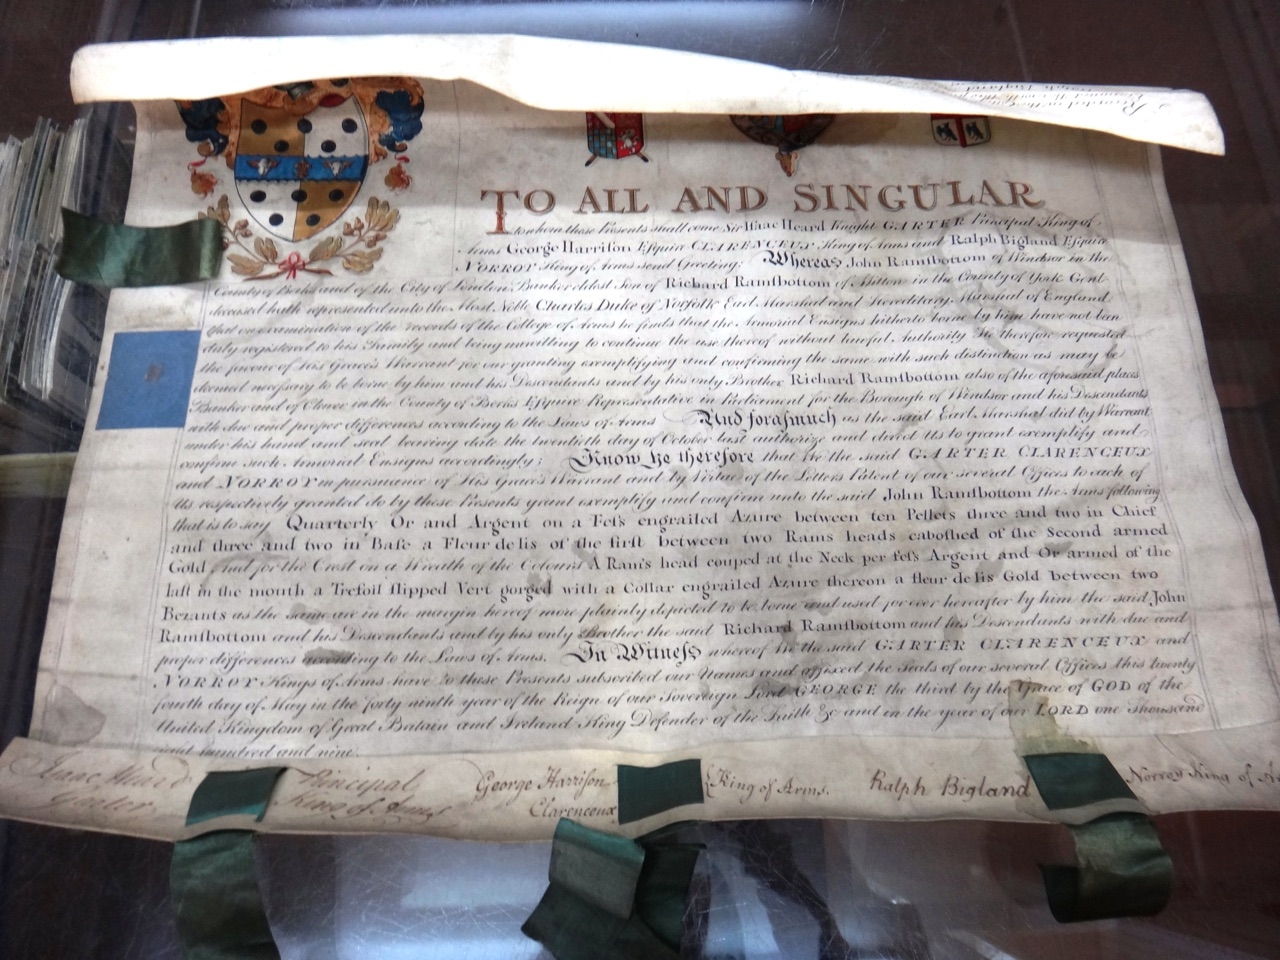 TO ALL AND SINGULAR
to whom these Presents shall come Sir Isaac Heard Knight GARTER Principal King of
Arms George Harriſon Eſquire CLARENCEUX King of Arms and Ralph Bigland Eſquire
NORROY King of Arms send Greeting; Whereas John Ramſbottom of Windsor in the
County of Berks and of the City of London, Banker eldest Son of Richard Ramſbottom of in the County of York Gent
deceased hath represented unto the Most Noble Charles Duke of Norfolk Earl Marshal and Hereditary Marshal of England
that on examination of the records of the College of Arms he finds that the Armorial Ensigns hitherto borne by him have not been
duly registered to his Family and being unwilling to continue the use thereof without lawful Authority He therefore requested
the favour of His Grace's Warrant for our granting exemplifying and confirming the same with such distinction as may be
deemed necessary to be borne by him and his Descendants and by his only Brother Richard Ramſbottom also of the aforesaid places
Banker and of Clewer in the County of Berks Eſquire Representative in Parliament for the Borough of Windsor and his Descendants
with due and proper differences according to the Laws of Arms And foraſmuch as the said Earl Marshal did by Warrant
under his hand and seal bearing date the twentieth day of October last authorize and direct Us to grant exemplify and
confirm such Armorial Ensigns accordingly; Know Ye therefore that We the said GARTER CLARENCEUX
and NORROY in pursuance of His Grace's Warrant and by Virtue of the Letters Patent of our several Offices to each of
Us respectively granted do by these Presents grant exemplify and confirm unto the said John Ramſbottom the Arms following
that is to say Quarterly Or and Argent on a Feſs engrailed Azure between ten Pellets three and two in Chief
and three and two in Baſe a Fleur de lis of the firſt between two Rams heads caboſhed of the Second armed
Gold, and for the Crest on a Wreath of the Colours A Ram's head couped at the Neck per feſs Argent and Or armed of the
laſt in the mouth a Trefoil ſlipped Vert gorged with a Collar engrailed Azure thereon a fleur de lis Gold between two
Bezants as the same are in the margin hereof more plainly depicted to be borne and used for ever hereafter by him the said John
Ramſbottom and his Descendants and by his only Brother the said Richard Ramſbottom and his Descendants with due and
proper differences according to the Laws of Arms. In Witneſs whereof We the said GARTER CLARENCEUX and
NORROY Kings of Arms have to these Presents subscribed our Names and affixed the Seals of our several Offices this twenty
fourth day of May in the forty ninth year of the Reign of our Sovereign Lord GEORGE the third by the Grace of GOD of the
United Kingdom of Great Britain and Ireland King Defender of the Faith &c and in the year of our LORD one thousand
eight hundred and nine.
Isaac Heard Principal George Harriſon King of Arms. Ralph Bigland Norroy King of
Garter King of Arms Clarenceux